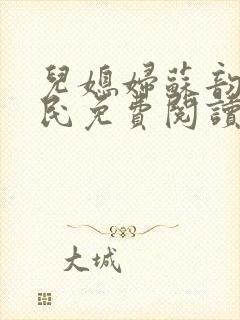 兒媳婦蘇韵
民免費閱讀
大城